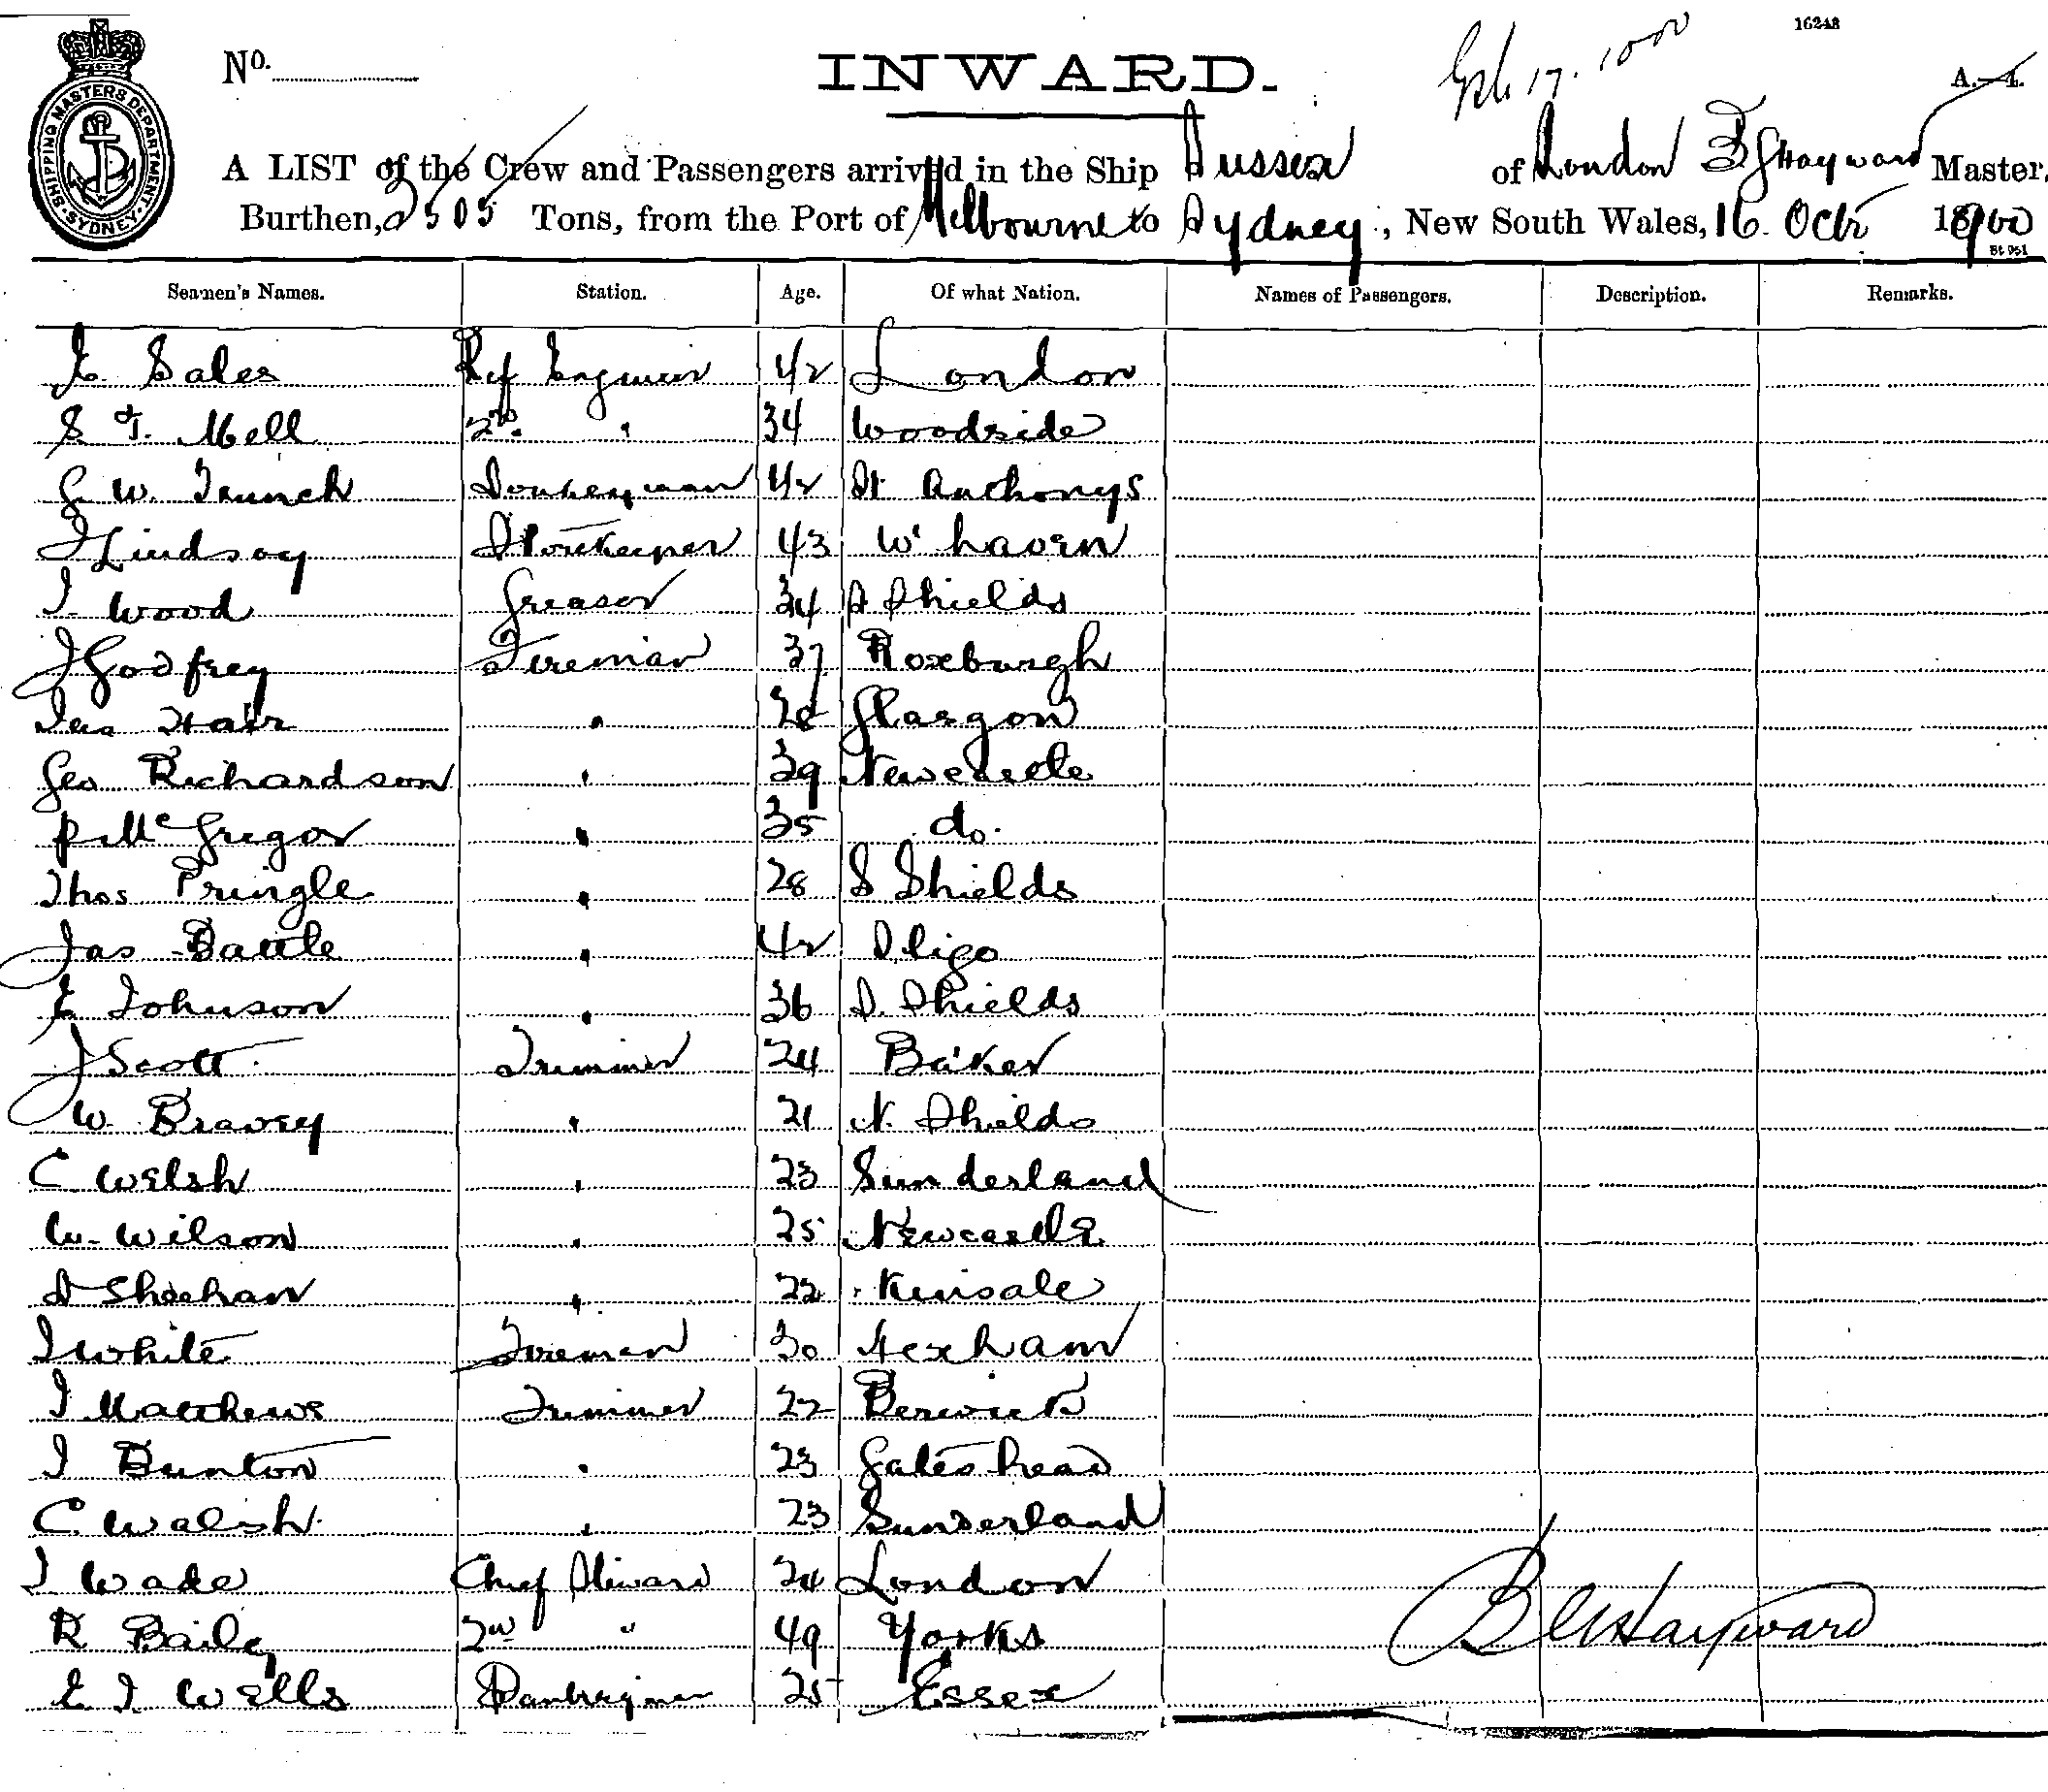 16248
No.
INWARD.
A.—4.
SHIPPING MASTERS DEPARTMENT. SYDNEY.
A LIST of the Crew and Passengers arrived in the Ship Sussex of London Hayward Master,
Burthen, 2505 Tons, from the Port of Melbourne to Sydney, New South Wales, 16 Oct 1900
Seamen's Names. Station. Age. Of what Nation. Names of Passengers. Description. Remarks.
E Sales Ref Engineer 42 London
S T. Mell 2nd " 34 Woodside
G W. Trunch Donkeyman 42 St Anthonys
J Lindsay Storekeeper 43 W'haven
J. Wood Greaser 34 S Shields
J Godfrey Fireman 37 Roxburgh
Hair " 28 Glasgow
Geo Richardson " 39 Newcastle
P McGregor " 35 do.
Thos Pringle " 28 S Shields
Jas Battle " 42 Sligo
E Johnson " 36 S. Shields
J Scott Trimmer 24 Baker
W. Bravey " 21 N. Shields
C Welsh " 23 Sunderland
W. Wilson " 25 Newcastle
D Sheehan " 22 Kinsale
J White Fireman 30 Hexham
J Matthews Trimmer 22 Berwick
J Bunton " 23 Gateshead
C. Walsh " 23 Sunderland
J Wade Chief Steward 24 London
R Baily 2nd " 49 Yorks
E J. Wells Pantryman 25 Essex
Hayward